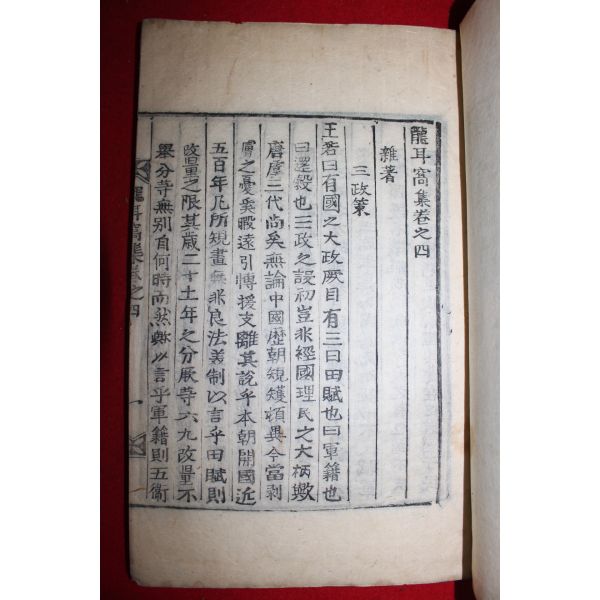 龍耳窩集卷之四
雜著
三政策
王若曰有國之大政厥目有三曰田賦也曰軍籍也
曰還穀也三政之設初豈非經國理民之大柄歟
唐虞三代尚矣無論中國歷朝規模頓異今當剥
膚之憂奚暇遠引博援支離其說乎本朝開國近
五百年凡所規畫無非良法美制以言乎田賦則
改量之限其歲二十土年之分厥等六九改量不
擧分等無別自何時而然歟以言乎軍籍則五衛
龍耳窩集卷之四 一